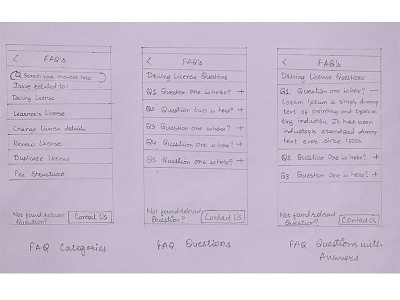 < FAQ's
Search your answers here
Issue related to:
Driving License
Learner's License
Change License details
Renew License
Duplicate License
Fee Structure
Not found relevant
Question?
Contact Us
FAQ Categories
< FAQ's
Driving License Questions
Q1 Question one is here? +
Q2 Question two is here? +
Q3 Question one is here? +
Q4 Question one is here? +
Q5 Question one is here? +
Not found relevant
Question?
Contact Us
FAQ Questions
< FAQ's
Driving License Questions
Q1 Question one is here? -
Lorem Ipsum is simply dummy
text of printing and typeset
ting industry. It has been
industry's standard dummy
text ever since 1500s.
Q2 Question One is here? +
Q3 Question One is here? +
Not found relevant
Question?
Contact Us
FAQ Questions with
Answers